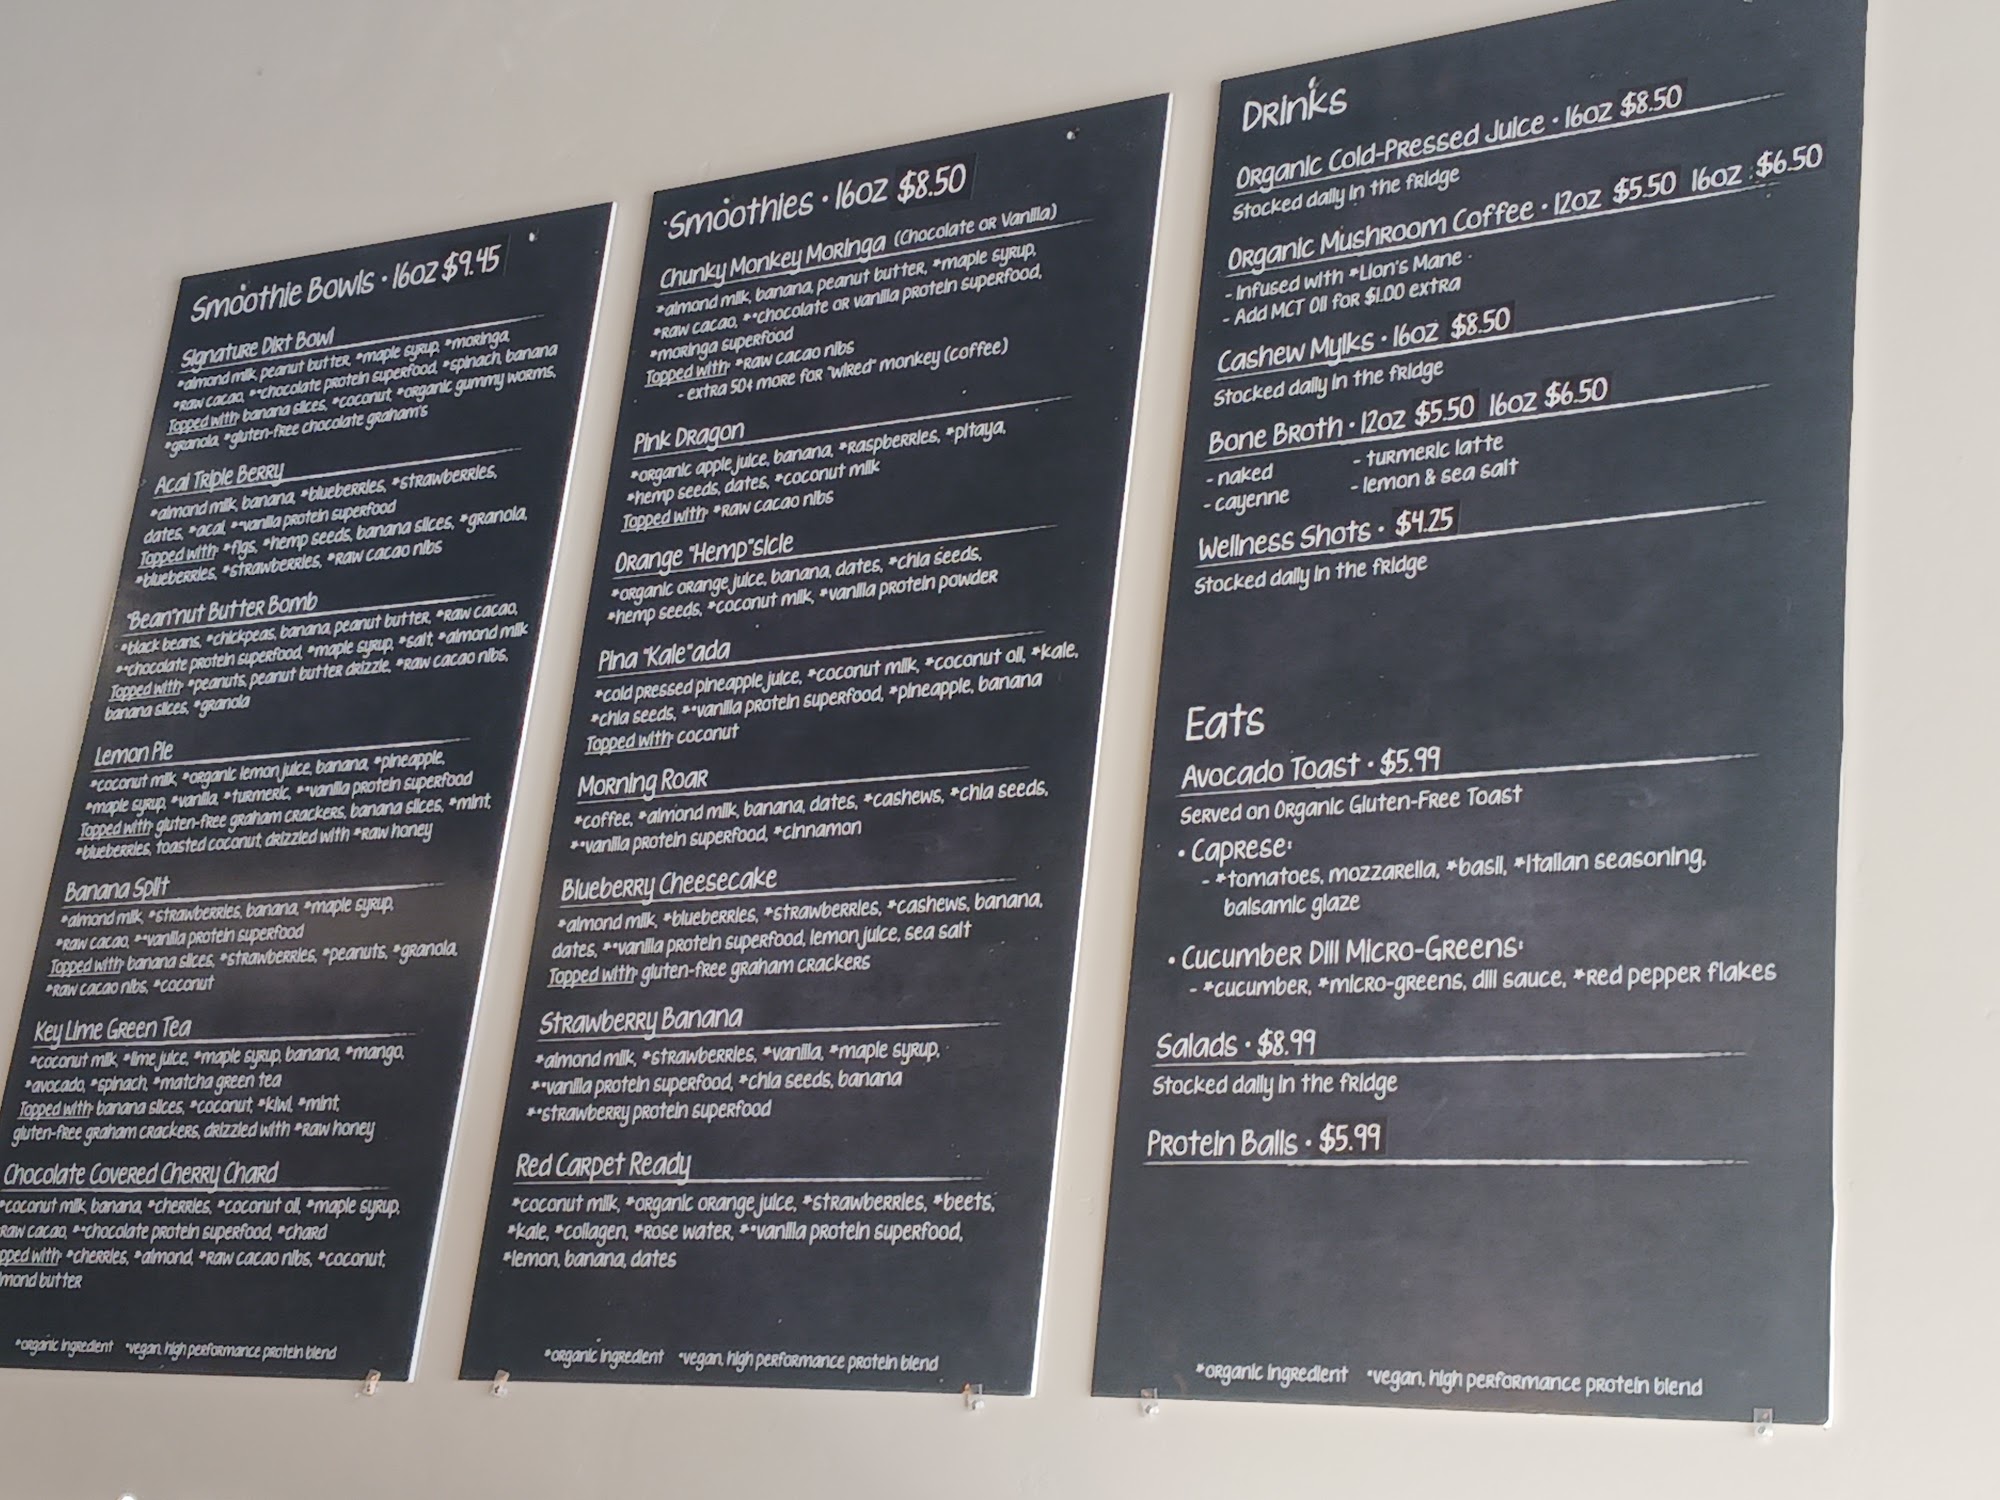 Smoothie Bowls · 16oz $9.45
Signature Dirt Bowl
*almond milk, peanut butter, *maple syrup, *moringa,
*raw cacao, *•chocolate protein superfood, *spinach, banana
Topped with: banana slices, *coconut, *organic gummy worms,
*granola, *gluten-free chocolate graham's
Acai Triple Berry
*almond milk, banana, *blueberries, *strawberries,
dates, *acai, *•vanilla protein superfood
Topped with: *figs, *hemp seeds, banana slices, *granola,
*blueberries, *strawberries, *raw cacao nibs
"Bean"nut Butter Bomb
*black beans, *chickpeas, banana, peanut butter, *raw cacao,
*•chocolate protein superfood, *maple syrup, *salt, *almond milk
Topped with: *peanuts, peanut butter drizzle, *raw cacao nibs,
banana slices, *granola
Lemon Pie
*coconut milk, *organic lemon juice, banana, *pineapple,
*maple syrup, *vanilla, *turmeric, *•vanilla protein superfood
Topped with: gluten-free graham crackers, banana slices, *mint,
*blueberries, toasted coconut, drizzled with *raw honey
Banana Split
*almond milk, *strawberries, banana, *maple syrup,
*raw cacao, *•vanilla protein superfood
Topped with: banana slices, *strawberries, *peanuts, *granola,
*raw cacao nibs, *coconut
Key Lime Green Tea
*coconut milk, *lime juice, *maple syrup, banana, *mango,
*avocado, *spinach, *matcha green tea
Topped with: banana slices, *coconut, *kiwi, *mint,
gluten-free graham crackers, drizzled with *raw honey
Chocolate Covered Cherry Chard
*coconut milk, banana, *cherries, *coconut oil, *maple syrup,
raw cacao, *•chocolate protein superfood, *chard
pped with: *cherries, *almond, *raw cacao nibs, *coconut,
mond butter
*organic ingredient •vegan, high performance protein blend
Smoothies · 16oz $8.50
Chunky Monkey Moringa (Chocolate or Vanilla)
*almond milk, banana, peanut butter, *maple syrup,
*raw cacao, *•chocolate or vanilla protein superfood,
*moringa superfood
Topped with: *raw cacao nibs
- extra 50¢ more for "wired" monkey (coffee)
Pink Dragon
*organic apple juice, banana, *raspberries, *pitaya,
*hemp seeds, dates, *coconut milk
Topped with: *raw cacao nibs
Orange "Hemp"sicle
*organic orange juice, banana, dates, *chia seeds,
*hemp seeds, *coconut milk, *vanilla protein powder
Pina "Kale"ada
*cold pressed pineapple juice, *coconut milk, *coconut oil, *kale,
*chia seeds, *•vanilla protein superfood, *pineapple, banana
Topped with: coconut
Morning Roar
*coffee, *almond milk, banana, dates, *cashews, *chia seeds,
*•vanilla protein superfood, *cinnamon
Blueberry Cheesecake
*almond milk, *blueberries, *strawberries, *cashews, banana,
dates, *•vanilla protein superfood, lemon juice, sea salt
Topped with: gluten-free graham crackers
Strawberry Banana
*almond milk, *strawberries, *vanilla, *maple syrup,
*•vanilla protein superfood, *chia seeds, banana
*•strawberry protein superfood
Red Carpet Ready
*coconut milk, *organic orange juice, *strawberries, *beets,
*kale, *collagen, *rose water, *•vanilla protein superfood,
*lemon, banana, dates
*organic ingredient •vegan, high performance protein blend
Drinks
Organic Cold-Pressed Juice · 16oz $8.50
Stocked daily in the fridge
Organic Mushroom Coffee · 12oz $5.50 16oz $6.50
- Infused with *Lion's Mane
- Add MCT Oil for $1.00 extra
Cashew Mylks · 16oz $8.50
Stocked daily in the fridge
Bone Broth · 12oz $5.50 16oz $6.50
- naked - turmeric latte
- cayenne - lemon & sea salt
Wellness Shots · $4.25
Stocked daily in the fridge
Eats
Avocado Toast · $5.99
Served on Organic Gluten-Free Toast
• Caprese:
- *tomatoes, mozzarella, *basil, *Italian seasoning,
balsamic glaze
• Cucumber Dill Micro-Greens:
- *cucumber, *micro-greens, dill sauce, *red pepper flakes
Salads · $8.99
Stocked daily in the fridge
Protein Balls · $5.99
*organic ingredient •vegan, high performance protein blend